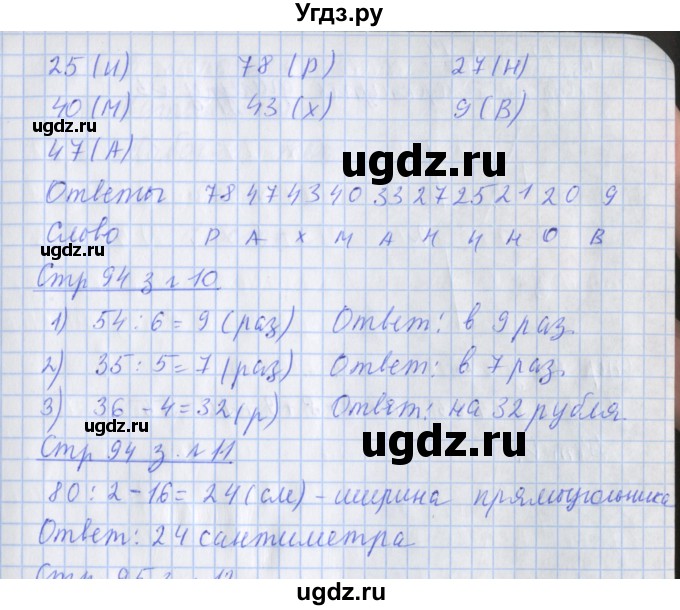 Угдз.ру
25 (И) 78 (Р) 27 (Н)
40 (М) 43 (Х) 9 (В)
www.ugdz.ru
47 (А)
ugdz.ru
Ответы 78 47 43 40 33 27 25 21 20 9
Слово Р А Х М А Н И Н О В
www.ugdz.ru
ugdz.ru
Стр 94 з. №10
1) 54 : 6 = 9 (раз) Ответ: в 9 раз.
2) 35 : 5 = 7 (раз) Ответ: в 7 раз.
3) 36 - 4 = 32 (р) Ответ: на 32 рубля.
www.ugdz.ru
ugdz.ru
Стр 94 з. №11
80 : 2 - 16 = 24 (см) - ширина прямоугольника
www.ugdz.ru
Ответ: 24 сантиметра
ugdz.ru
ugdz.ru